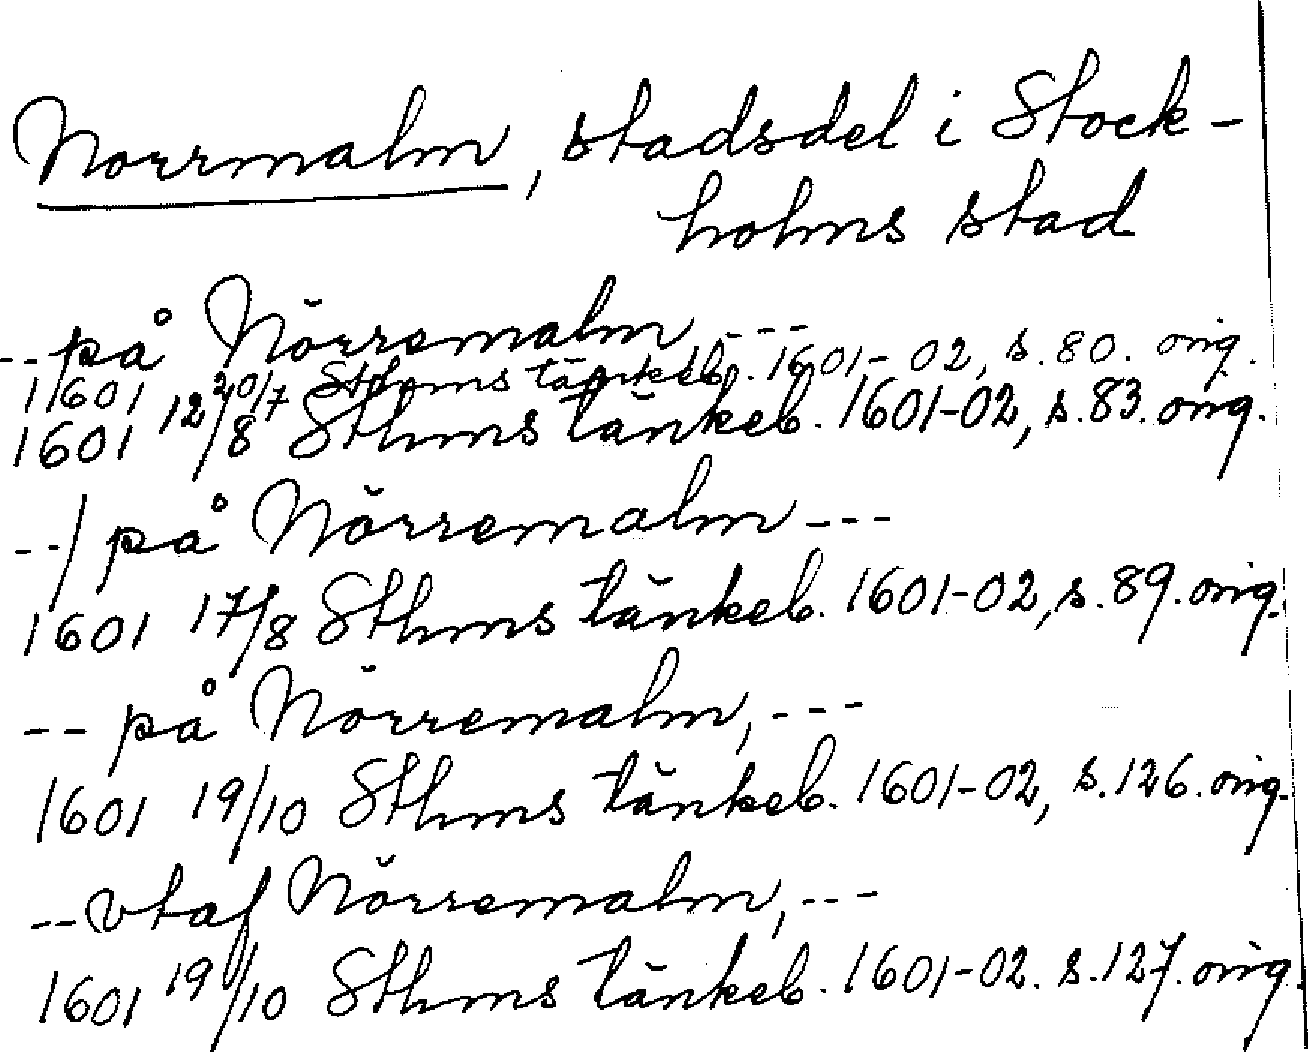 Norrmalm, stadsdel i Stock-
holms stad
-- på Nörremalm ---
1601 20/7 Sthms tänkeb. 1601-02, s. 80. orig.
1601 12/8 Sthms tänkeb. 1601-02, s. 83. orig.
--/ på Nörremalm ---
1601 17/8 Sthms tänkeb. 1601-02, s. 89. orig.
-- på Nörremalm, ---
1601 19/10 Sthms tänkeb. 1601-02, s. 126. orig.
-- vtaf Nörremalm, ---
1601 19/10 Sthms tänkeb. 1601-02. s. 127. orig.